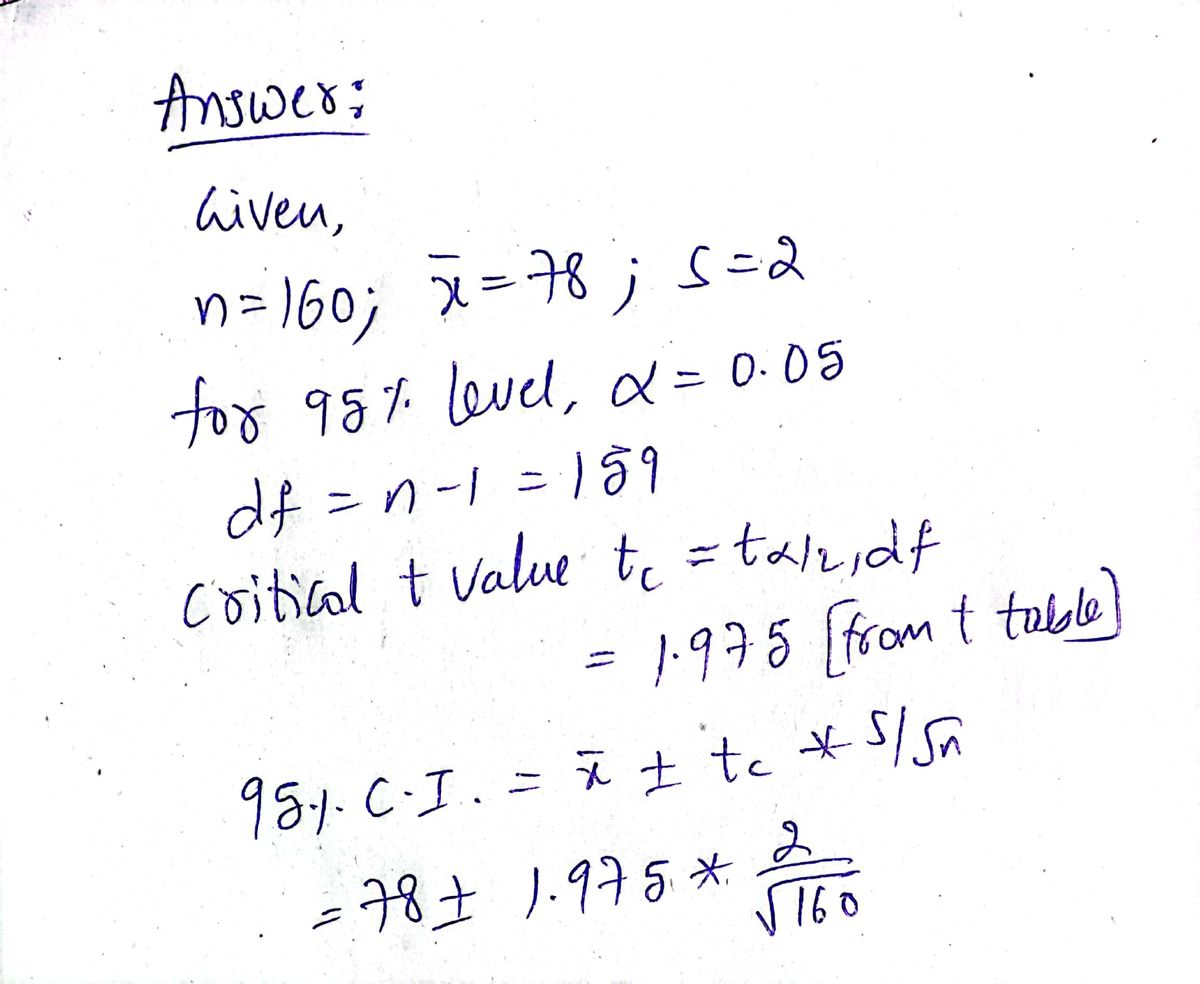 Answer:
Given,
n=160; x̄=78; S=2
for 95% level, α=0.05
df = n-1 = 159
Critical t value t_c = t_α/2,df
= 1.975 [from t table]
95% C.I. = x̄ ± t_c * S/√n
= 78 ± 1.975 * 2/√160